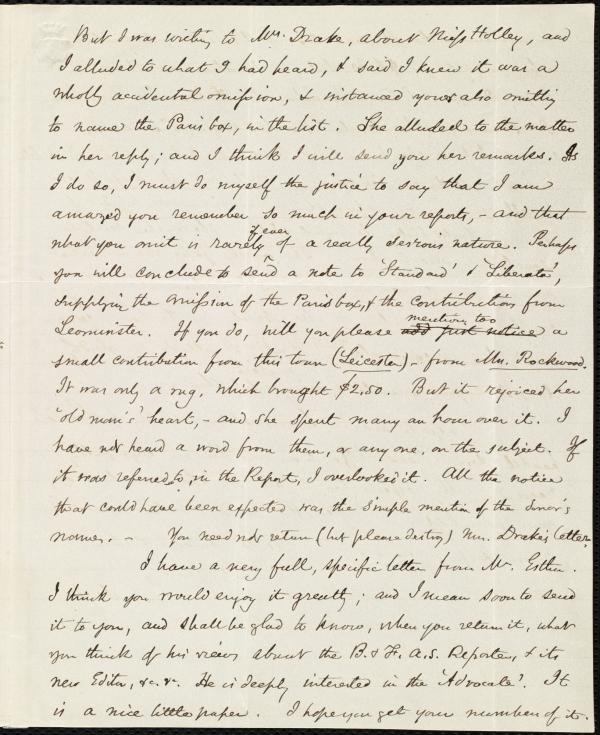 But I was writing to Mrs. Drake, about Miss Holley, and
I alluded to what I had heard, & said I knew it was a
wholly accidental omission, & instanced your also omitting
to name the Paris box, in the list. She alluded to the matter
in her reply; and I think I will send you her remarks. As
I do so, I must do myself the justice to say that I am
amazed you remember so much in your reports, - and that
if ever
what you omit is rarely of a really serious nature. Perhaps
you will conclude to send a note to 'Standard' & 'Liberator',
supplying the omission of the Paris box, & the contribution from
mention too
Leominster. If you do, will you please add just notice a
small contribution from this town (Leicester) - from Mrs. Rockwood.
It was only a rug, which brought $2.50. But it rejoiced her
'old mom's' heart, - and she spent many an hour over it. I
have not heard a word from them, or any one, on the subject. If
it was referred to, in the Report, I overlooked it. All the notice
that could have been expected was the simple mention of the donor's
names. - You need not return (but please destroy) Mrs. Drake's letter.
I have a very full, specific letter from Mr. Estlin.
I think you would enjoy it greatly; and I mean soon to send
it to you, and shall be glad to know, when you return it, what
you think of his views about the B. & F. A. S. Reporter, & its
new Editor, &c. &c. He is deeply interested in the 'Advocate'. It
is a nice little paper. I hope you get your number of it.